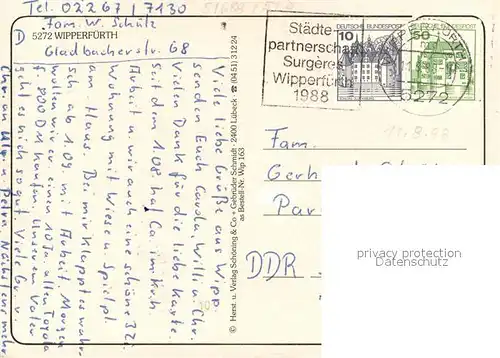 Tel. 02267/7130
Fam. W. Schütz
D 5272 WIPPERFÜRTH
Gladbacherstr. 68
Städte-
partnerschaft
Surgères
Wipperfürth
1988
10 DEUTSCHE BUNDESPOST
50 DEUTSCHE BUNDESPOST
5272
Viele liebe Grüße aus Wipp.
senden Euch Carola, Willi u. Chr.
Vielen Dank für die liebe Karte.
Seit dem 1.08 hat Ca. im Kkh.
Arbeit u. wir auch eine schöne 3 Zi
Wohnung mit Wiese u. Spielpl.
am Haus. Bei mir klappt es wahr-
sch. ab 1.09. mit Arbeit. Morgen
wollen wir für einen 10 Ja. alten Toyota
f. 800 DM kaufen. Unserem Vater
geht es nicht so gut. Viele Gr. v.
Chr. an Ulr. u. Petra. Nächstens mehr
© Herst. u. Verlag Schöning & Co + Gebrüder Schmidt · 2400 Lübeck · ☎ (0451) 31224
as Bestell-Nr. Wip 163
Fam.
Gerh
Par
DDR
privacy protection
Datenschutz